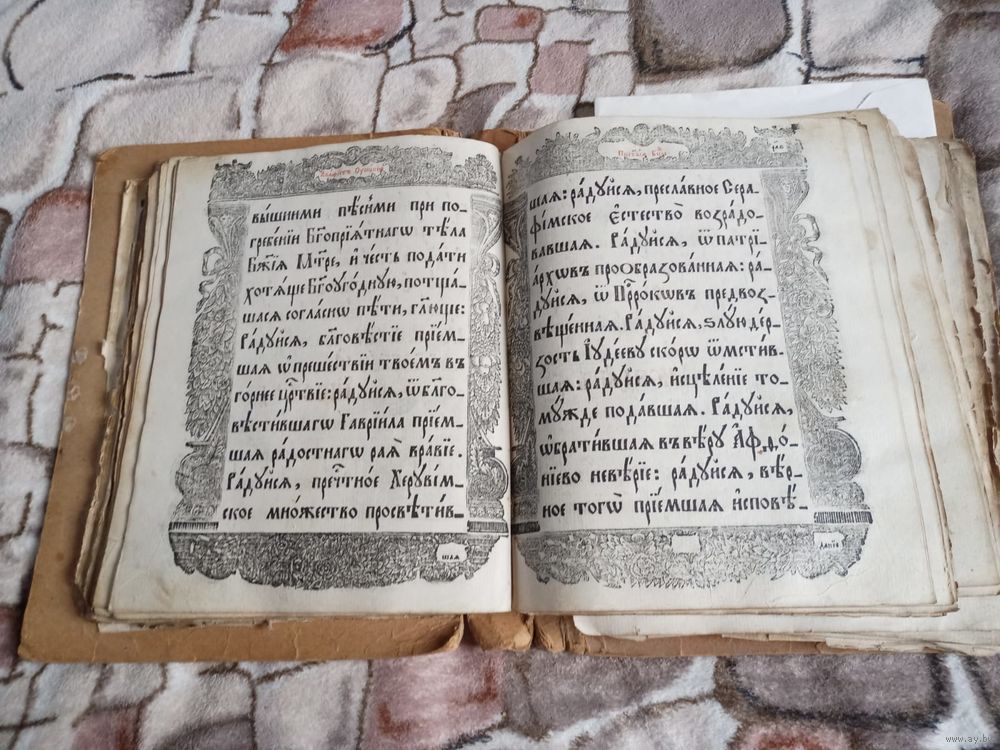 Акаѳїстъ Оуспенїю
вы́шними пѣ́сньми при по-
гребе́нїи Бг҃опрїѧ́тнагѡ тѣ́ла
Бж҃їѧ Мт҃ре, и҆ че́сть пода́ти
хотѧ́ще Бг҃оуго́дную, потща́-
шасѧ согла́сно пѣ́ти, гл҃юще:
Ра́дуйсѧ, бл҃говѣ́стїе прїе́м-
шаѧ ѡ҆ преше́ствїи твое́мъ въ
го́рнее црⷭ҇твїе: ра́дуйсѧ, ѿ бл҃го-
вѣсти́вшагѡ Гаврїи́ла прїе́м-
шаѧ ра́достнагѡ раѧ̀ вра́вїе.
Ра́дуйсѧ, пречⷭ҇тно́е Херуви́м-
ское мно́жество просвѣти́в-
шаѧ
Прест҃ыѧ Бц҃ы
шаѧ: ра́дуйсѧ, пресла́вное Сера-
фі́мское є҆стество̀ возра́до-
вавшаѧ. Ра́дуйсѧ, ѿ патрї-
а́рхѡвъ проѡбразова́ннаѧ: ра́-
дуйсѧ, ѿ Прⷪ҇ро́кѡвъ предвоз-
вѣще́ннаѧ. Ра́дуйсѧ, ѕлу́ю де́р-
зость І҆уде́еву ско́рѡ ѿмсти́в-
шаѧ: ра́дуйсѧ, и҆сцѣле́нїе то-
му́жде пода́вшаѧ. Ра́дуйсѧ,
ѡ҆брати́вшаѧ въ вѣ́ру А҆фѳо́-
нїево невѣ́рїе: ра́дуйсѧ, вѣ́р-
ное тогѡ̀ прїе́мшаѧ и҆сповѣ́-
данїе
www.ay.by